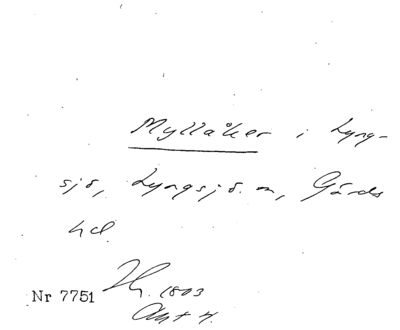 Myllåker i Lyng-
sjö, Lyngsjö sn, Gärds
hd.
Nr 7751
1803
Akt 4.